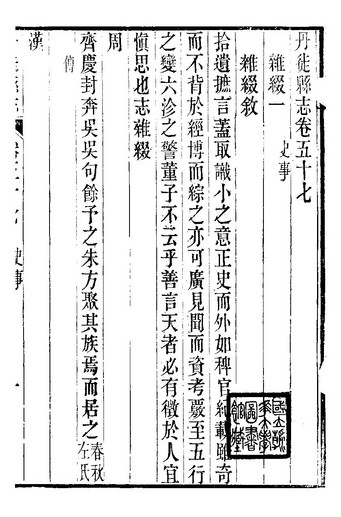 丹徒縣志卷五十七
雜綴一
史事
雜綴敘
拾遺摭言蓋取識小之意正史而外如稗官紀載雖奇
而不背於經博而綜之亦可廣見聞而資考覈至五行
之變六沴之警董子不云乎善言天者必有徵於人宜
愼思也志雜綴
周
齊慶封奔吳吳句餘予之朱方聚其族焉而居之春秋左氏
傳
漢
史事
一